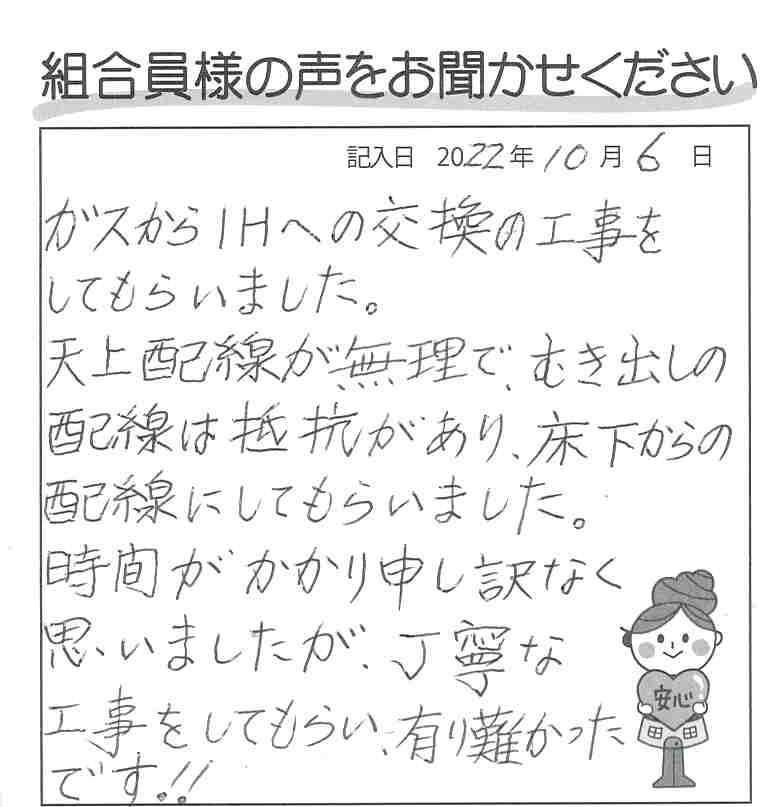 組合員様の声をお聞かせください
記入日 2022年10月6日
ガスからIHへの交換の工事を
してもらいました。
天上配線が無理で、むき出しの
配線は抵抗があり、床下からの
配線にしてもらいました。
時間がかかり申し訳なく
思いましたが、丁寧な
工事をしてもらい、有り難かった
です!!
安心